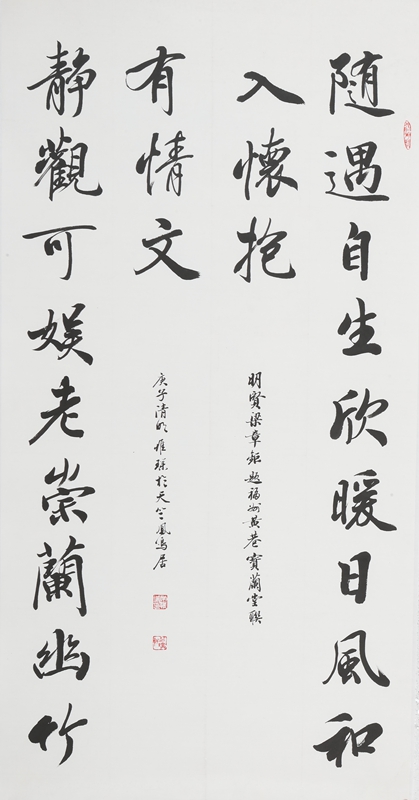 隨遇自生欣暖日風和
入懷抱
明賢梁章鉅題福州黃巷寶蘭堂聯
靜觀可娱老崇蘭幽竹
有情文
庚子清明 於天
居